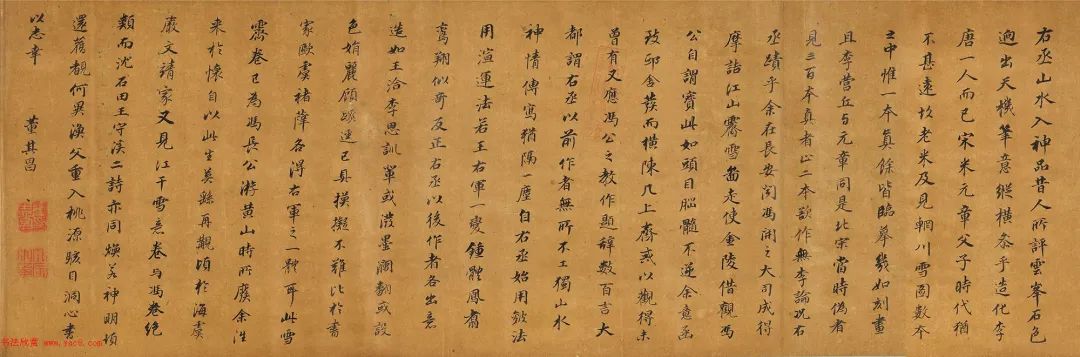 右丞山水入神品昔人所評雲峯石色
迥出天機筆意縱橫參乎造化李
唐一人而已宋米元章父子時代猶
不甚遠故老米及見輞川雪圖數本
之中惟一本真餘皆臨摹幾如刻畫
且李營丘与元章同是北宋當時偽者
見三百本真者止二本欲作無李論况右
丞蹟乎余在長安聞馮開之大司成得
摩詰江山霽雪圖走使金陵借觀馮
公自謂寶此如頭目腦髓不逆余意函
致邸舍發而橫陳几上齋戒以觀得未
曾有又應馮公之教作題辭數百言大
都謂右丞以前作者無所不工獨山水
神情傳寫猶隔一塵自右丞始用皴法
用渲運法若王右軍一變鍾體鳳翥
鸞翔似奇反正右丞以後作者各出意
造如王洽李思訓軰或潑墨瀾翻或設
色娟麗顧蹊逕已具模擬不難此於書
家歐虞褚薛各得右軍之一體耳此雪
霽卷已為馮長公游黄山時所廢余往
來於懷自以此生莫緣再覯頃於海虞
嚴文靖家又見江干雪意卷与馮卷絶
類而沈石田王守溪二詩亦同煥若神明頓
還舊觀何異漁父重入桃源駭目洞心書
以志幸 董其昌
书法欣赏 www.yac8.com